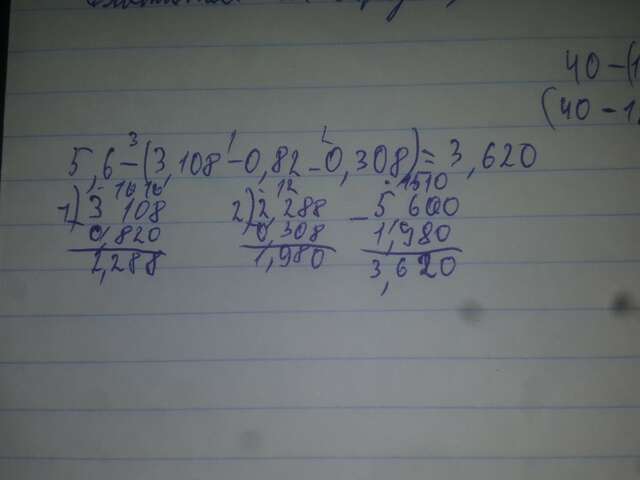 40-(1
(40-1,
3 1 2
5,6-(3,108-0,82-0,308)=3,620
1) 3,108 2) 2,288 - 5,600
0,820 0,308 1,980
2,288 1,980 3,620